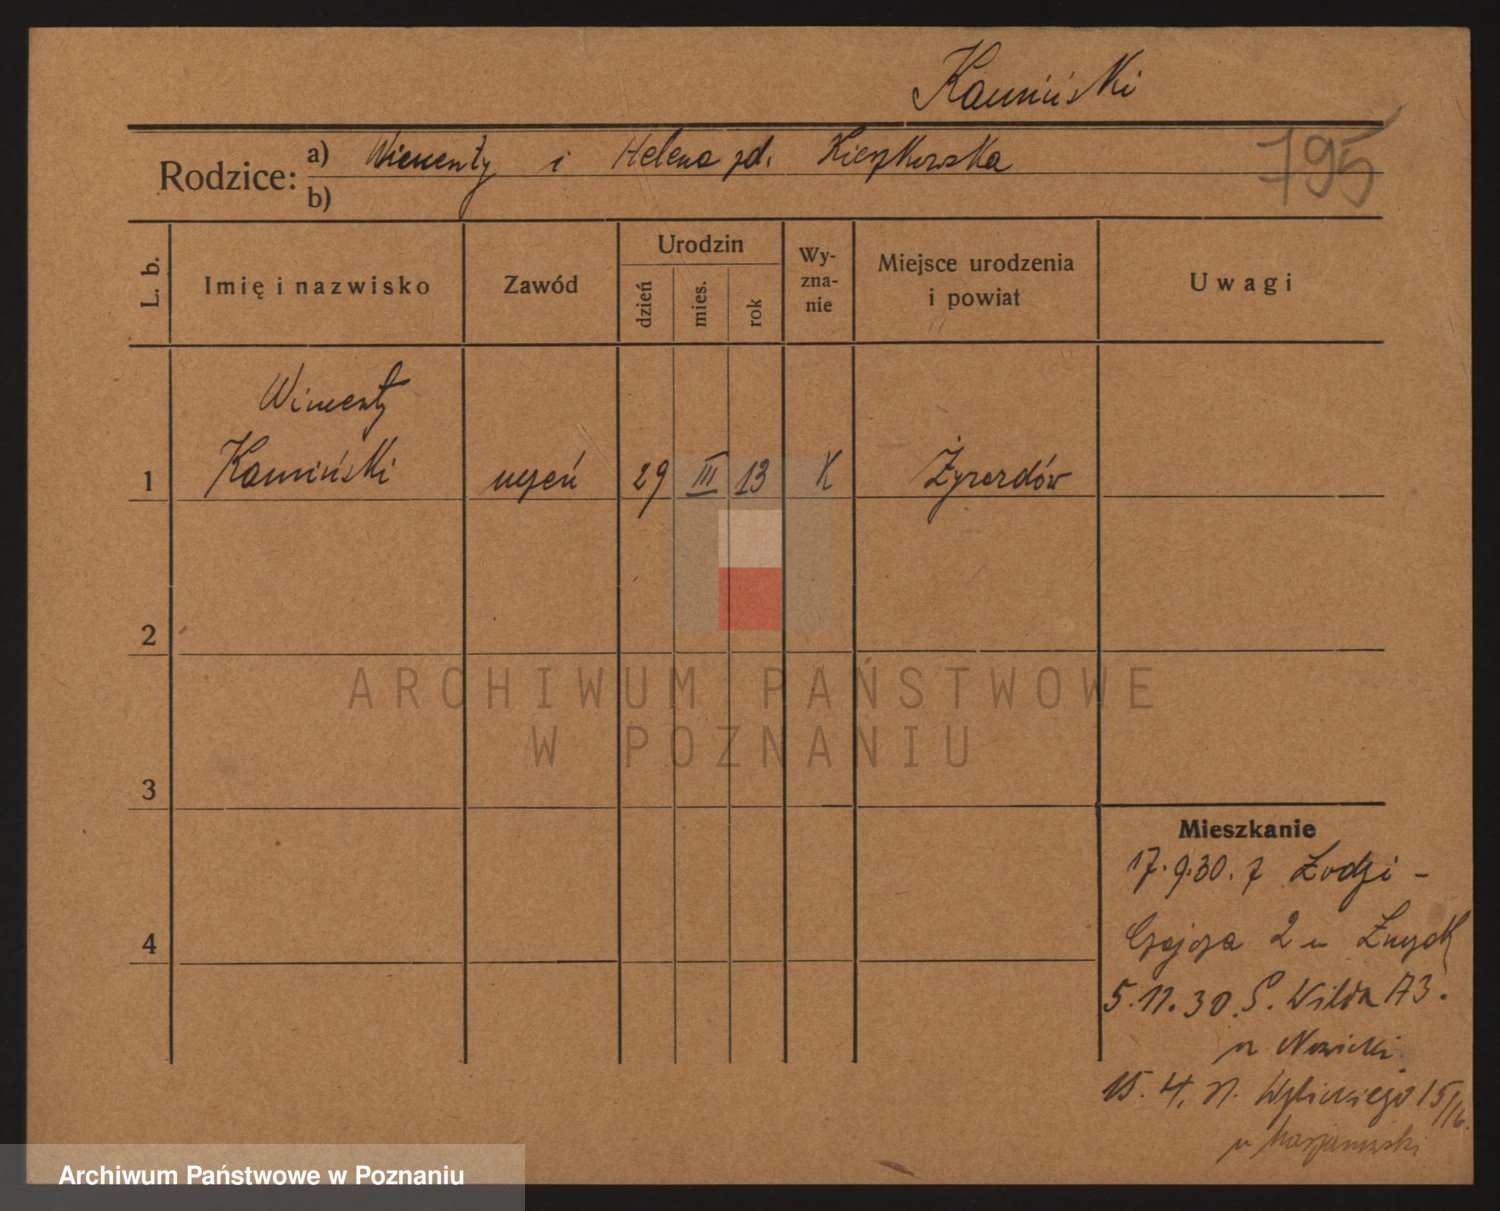 Kamiński
795
Rodzice: a) Wincenty i Helena zd. Kiepkowska
b)
L. b. Imię i nazwisko Zawód Urodzin dzień mies. rok Wy-zna-nie Miejsce urodzenia i powiat Uwagi
Wincenty
1 Kamiński uczeń 29 III 13 K Żyrardów
2
ARCHIWUM PAŃSTWOWE
W POZNANIU
3
Mieszkanie
17.9.30. z Łodzi -
4
Czajcza 2 u
5.11.30. G. Wilda 73.
u Nowicki
15. 4. 31. Wybickiego 15/16.
u
Archiwum Państwowe w Poznaniu